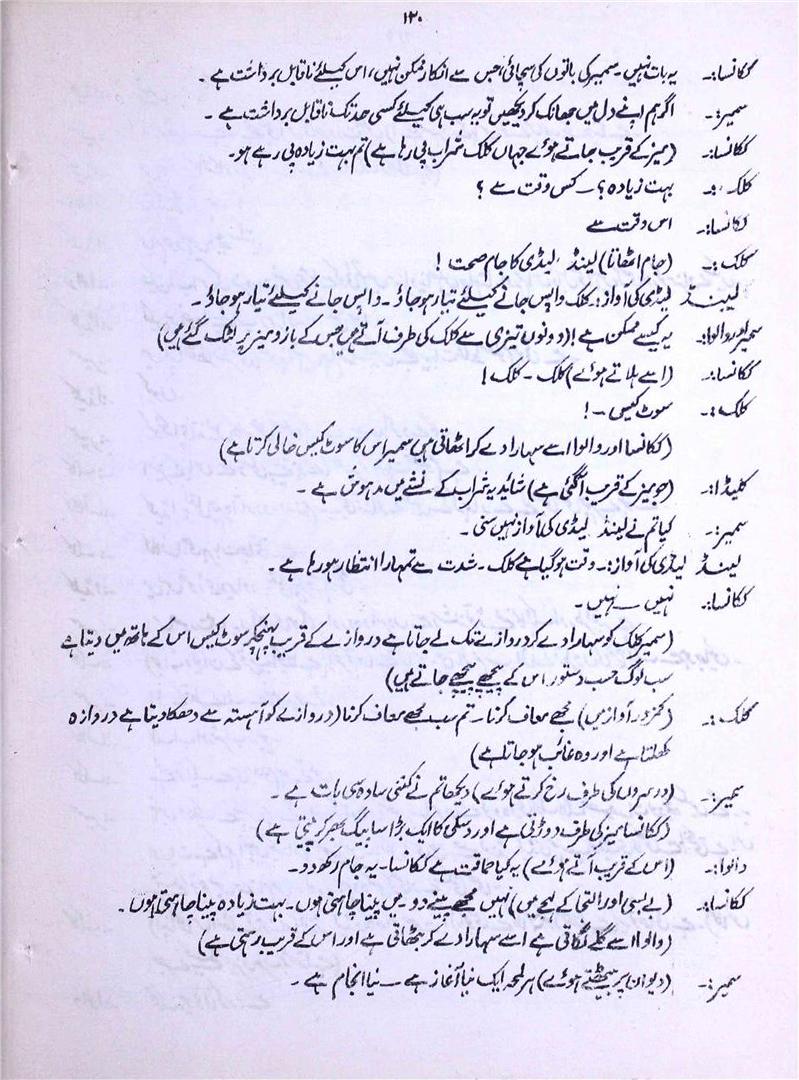 ۱۳۰
ککانسا:۔ یہ بات نہیں۔ سمیر کی باتوں کی سچائی، جس سے انکار ممکن نہیں، اس کیلئے ناقابل برداشت ہے۔
سمیر:۔ اگر ہم اپنے دل میں جھانک کر دیکھیں تو یہ سب ہی کیلئے کسی حد تک ناقابل برداشت ہے ۔
ککانسا:۔ (میز کے قریب جاتے ہوئے جہاں کلک شراب پی رہا ہے) تم بہت زیادہ پی رہے ہو۔
کلک:۔ بہت زیادہ؟ – کس وقت سے ؟
ککانسا:۔ اس وقت سے
کلک:۔ (جام اٹھانا) لینڈ لیڈی کا جام صحت !
لینڈ لیڈی کی آواز:۔ کلک واپس جانے کیلئے تیار ہو جاؤ ۔ واپس جانے کیلئے تیار ہو جاؤ ۔
سمیر اور والوا:۔ یہ کیسے ممکن ہے! (دونوں تیزی سے کلک کی طرف آتے ہیں جس کے بازو میز پر لٹک گئے ہیں)
ککانسا:۔ (اسے ہلاتے ہوئے) کلک ۔ کلک !
کلک:۔ سوٹ کیس –!
(ککانسا اور والوا اسے سہارا دے کر اٹھاتی ہیں سمیر اس کا سوٹ کیس خالی کرتا ہے)
کلیڈا:۔ (جو میز کے قریب آگئی ہے) شائد یہ شراب کے نشے میں مدہوش ہے ۔
سمیر:۔ کیا تم نے لینڈ لیڈی کی آواز نہیں سنی ۔
لینڈ لیڈی کی آواز:۔ وقت ہو گیا ہے کلک ۔ شدت سے تمہارا انتظار ہو رہا ہے ۔
ککانسا:۔ نہیں – نہیں ۔
(سمیر کلک کو سہارا دے کر دروازے تک لے جاتا ہے دروازے کے قریب پہنچکر سوٹ کیس اس کے ہاتھ میں دیتا ہے
سب لوگ حسب دستور اس کے پیچھے پیچھے جاتے ہیں)
کلک:۔ (کمزور آواز میں) مجھے معاف کرنا – تم سب مجھے معاف کرنا (دروازے کو آہستہ سے دھکا دیتا ہے دروازہ
کھلتا ہے اور وہ غائب ہو جاتا ہے)
سمیر:۔ (دوسروں کی طرف رخ کرتے ہوئے) دیکھا تم نے کتنی سادہ سی بات ہے ۔
(ککانسا میز کی طرف دوڑتی ہے اور وسکی کا ایک بڑا سا پیگ بھر کر پیتی ہے)
والوا:۔ (اس کے قریب آتے ہوئے) یہ کیا حماقت ہے ککانسا – یہ جام رکھ دو ۔
ککانسا:۔ (بے بسی اور التجا کے لہجے میں) نہیں مجھے پینے دو – میں پینا چاہتی ہوں ۔ بہت زیادہ پینا چاہتی ہوں ۔
(والوا اسے گلے لگاتی ہے اسے سہارا دے کر بٹھاتی ہے اور اس کے قریب رہتی ہے)
سمیر:۔ (دیوان پر بیٹھتے ہوئے) ہر لمحہ ایک نیا آغاز ہے – نیا انجام ہے ۔